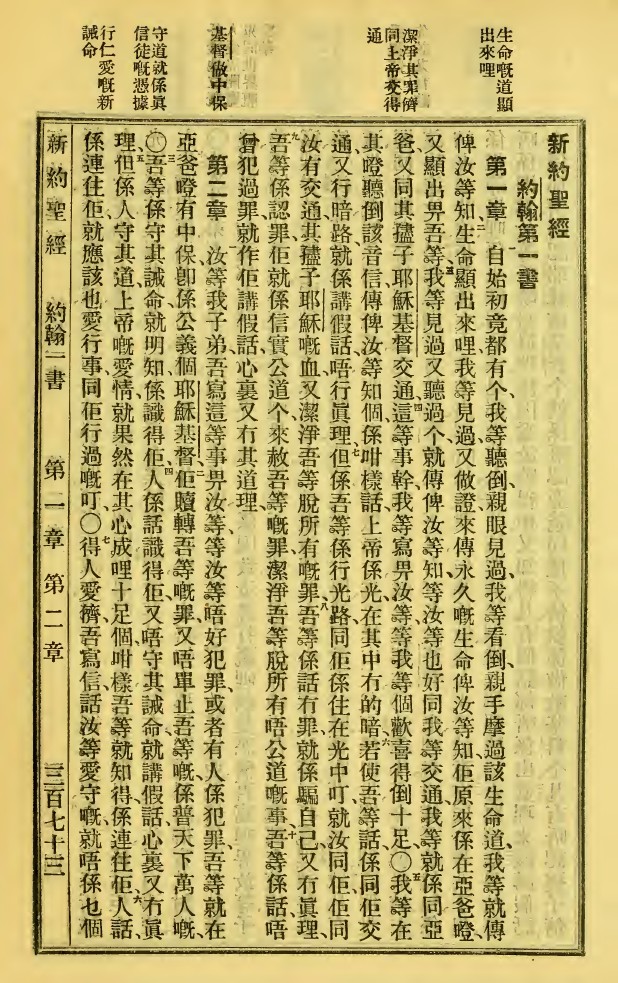 生命嘅道顯
出來哩
潔淨其罪儕
同上帝交得
通
基督做中保
守道就係眞
信徒嘅憑據
行仁愛嘅新
誡命
新約聖經
約翰第一書
第一章 一自始初竟都有个、我等聽倒、親眼見過、我等看倒、親手摩過該生命道、我等就傳
俾汝等知、二生命顯出來哩、我等見過、又做證來傳永久嘅生命俾汝等知、佢原來係在亞爸嶝、
又顯出畀吾等、三我等見過又聽過个、就傳俾汝等知、等汝等也好同我等交通、我等就係同亞
爸、又同其𤘅子耶穌基督交通、四這等事幹、我等寫畀汝等、等我等個歡喜得倒十足、〇五我等在
其嶝聽倒該音信傳俾汝等知個、係咁樣話、上帝係光、在其中冇的暗、六若使吾等話係同佢交
通、又行暗路、就係講假話、唔行眞理、七但係吾等係行光路、同佢係住在光中叮、就汝同佢佢同
汝有交通、其𤘅子耶穌嘅血、又潔淨吾等脫所有嘅罪、八吾等係話冇罪、就係騙自己、又冇眞理、
九吾等係認罪、佢就係信實公道个、來赦吾等嘅罪、潔淨吾等脫所有唔公道嘅事、十吾等係話唔
曾犯過罪、就作佢講假話、心裏又冇其道理、
第二章 一汝等我子弟、吾寫這等事畀汝等、等汝等唔好犯罪、或者有人係犯罪、吾等就在
亞爸嶝有中保、卽係公義個耶穌基督、二佢贖轉吾等嘅罪、又唔單止吾等嘅、係普天下萬人嘅、
〇三吾等係守其誡命、就明知係識得佢、四人係話識得佢、又唔守其誡命、就講假話、心裏又冇眞
理、五但係人守其道、上帝嘅愛情、就果然在其心成哩十足個、咁樣吾等就知得係連住佢、六人話
係連住佢、就應該也愛行事同佢行過嘅叮、〇七得人愛儕、吾寫信話汝等愛守嘅、就唔係乜個
新約聖經 約翰一書 第一章 第二章 三百七十三